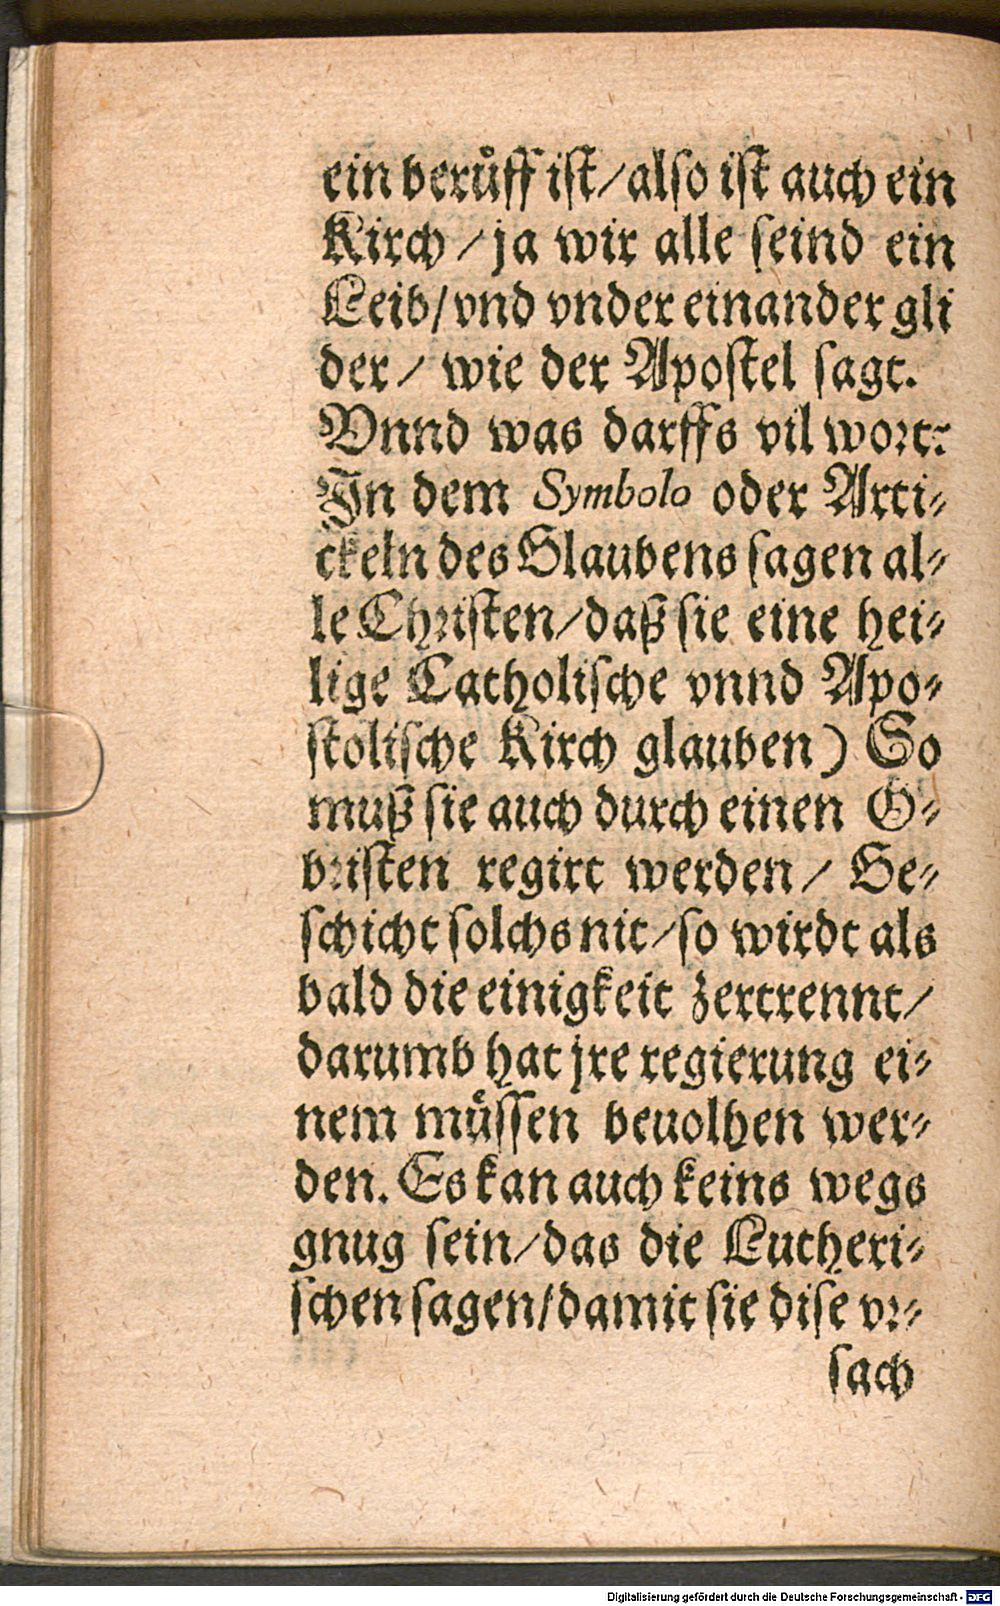 ein beruͦff ist/also ist auch ein
Kirch / ja wir alle seind ein
Leib/vnd vnder einander gli
der/ wie der Apostel sagt.
Vnnd was darffs vil wort?
In dem Symbolo oder Arti-
ckeln des Glaubens sagen al-
le Christen/daß sie eine hei-
lige Catholische vnnd Apo-
stolische Kirch glauben) So
muß sie auch durch einen O-
bristen regirt werden/ Ge-
schicht solchs nit/so wirdt als
bald die einigkeit zertrennt/
darumb hat jre regierung ei-
nem muͤssen beuolhen wer-
den. Es kan auch keins wegs
gnug sein/das die Lutheri-
schen sagen/damit sie dise vr-
sach
Digitalisierung gefördert durch die Deutsche Forschungsgemeinschaft - DFG